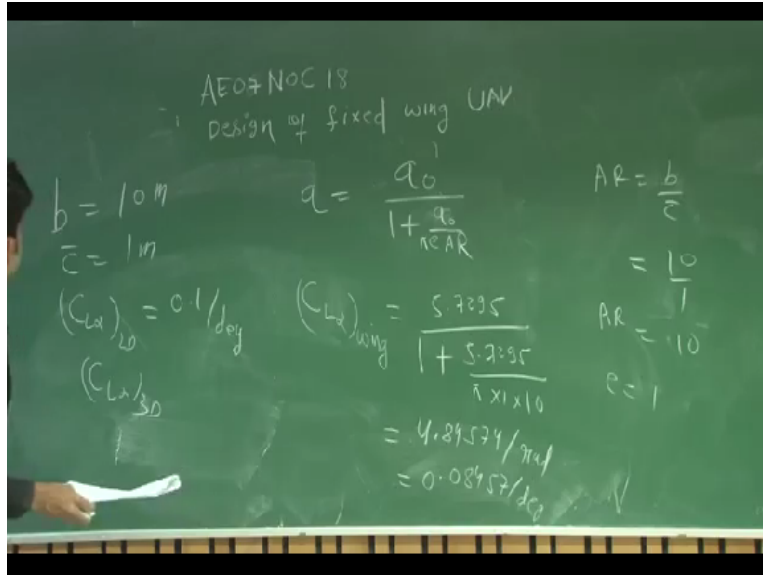 AE07NOC18
Design of fixed wing UAV
b = 10 m
c̄ = 1 m
(CLα)2D = 0.1/deg
(CLα)3D
a = a0 / 1 + a0 / πeAR
(CLα)wing = 5.7295 / 1 + 5.7295 / π×1×10
= 4.84574/rad
= 0.08457/deg
AR = b / c̄
= 10 / 1
AR = 10
e = 1